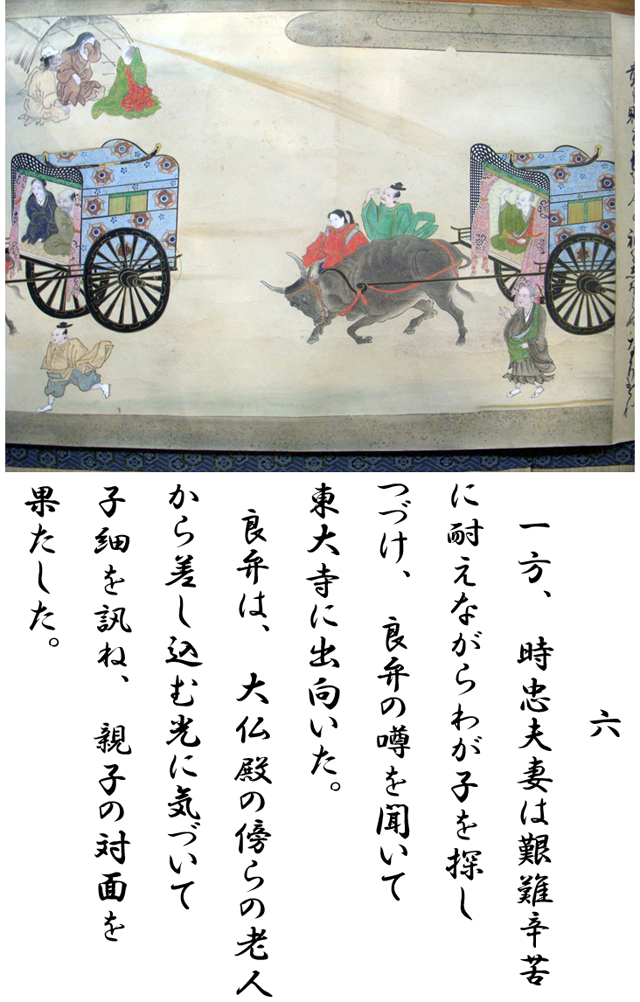 六
一方、時忠夫妻は艱難辛苦
に耐えながらわが子を探し
つづけ、良弁の噂を聞いて
東大寺に出向いた。
良弁は、大仏殿の傍らの老人
から差し込む光に気づいて
子細を訊ね、親子の対面を
果たした。